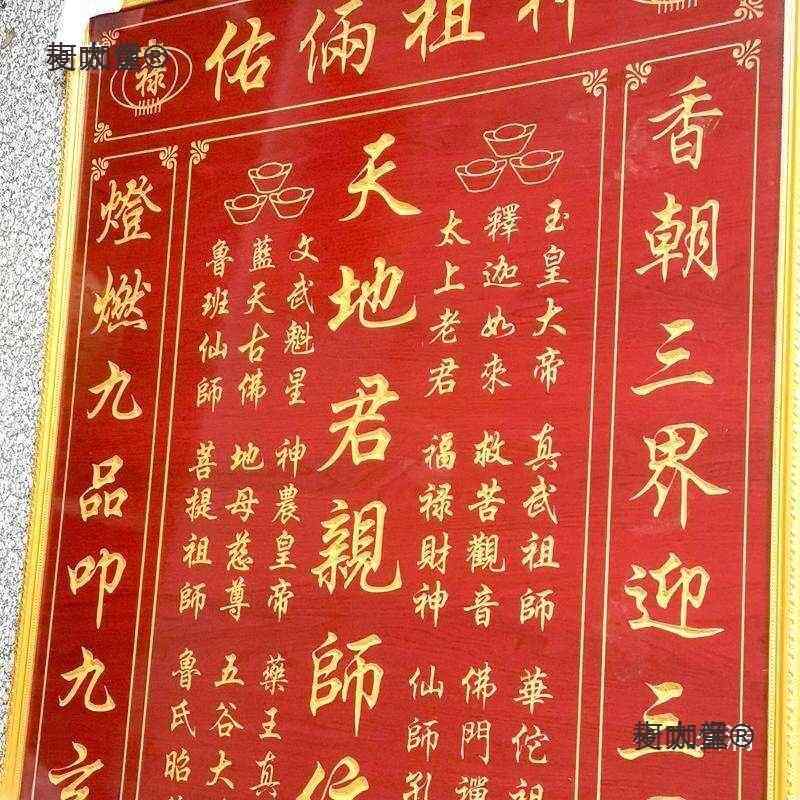 祿
佑倆祖神
香朝三界迎三
玉皇大帝 真武祖師 華佗祖
釋迦如來 救苦觀音 佛門禪
太上老君 福禄財神 仙師孔
天地君親師位
文武魁星 神農皇帝 藥王真
藍天古佛 地母慈尊 五谷大
魯班仙師 菩提祖師 魯氏昭
燈燃九品叩九玄